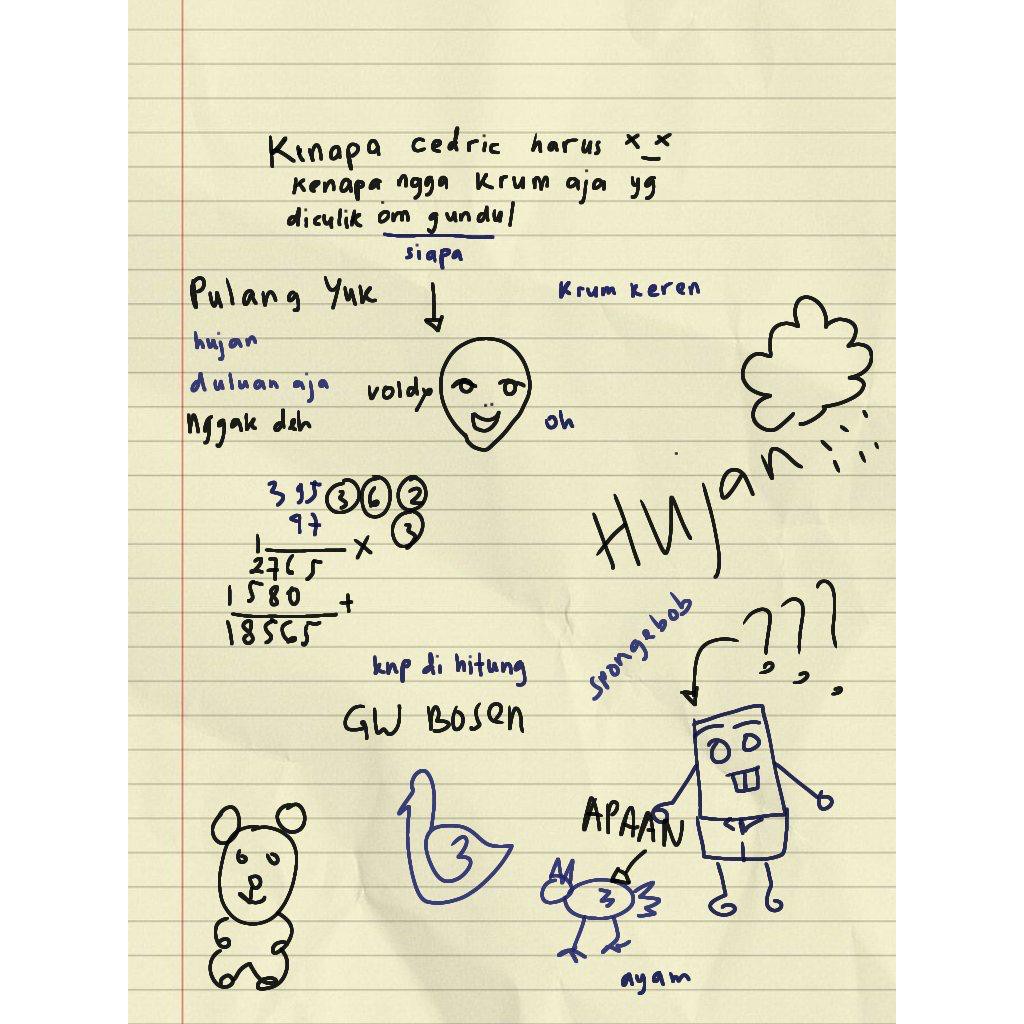 Kenapa cedric harus x_x
kenapa ngga Krum aja yg
diculik om gundul
siapa
Pulang Yuk
Krum keren
hujan
duluan aja
voldy
nggak deh
oh
Hujan
395 3 6 2
97 3
1 x
2765
1580 +
18565
spongebob
???
knp di hitung
GW BOSEN
APAAN
3
3
ayam